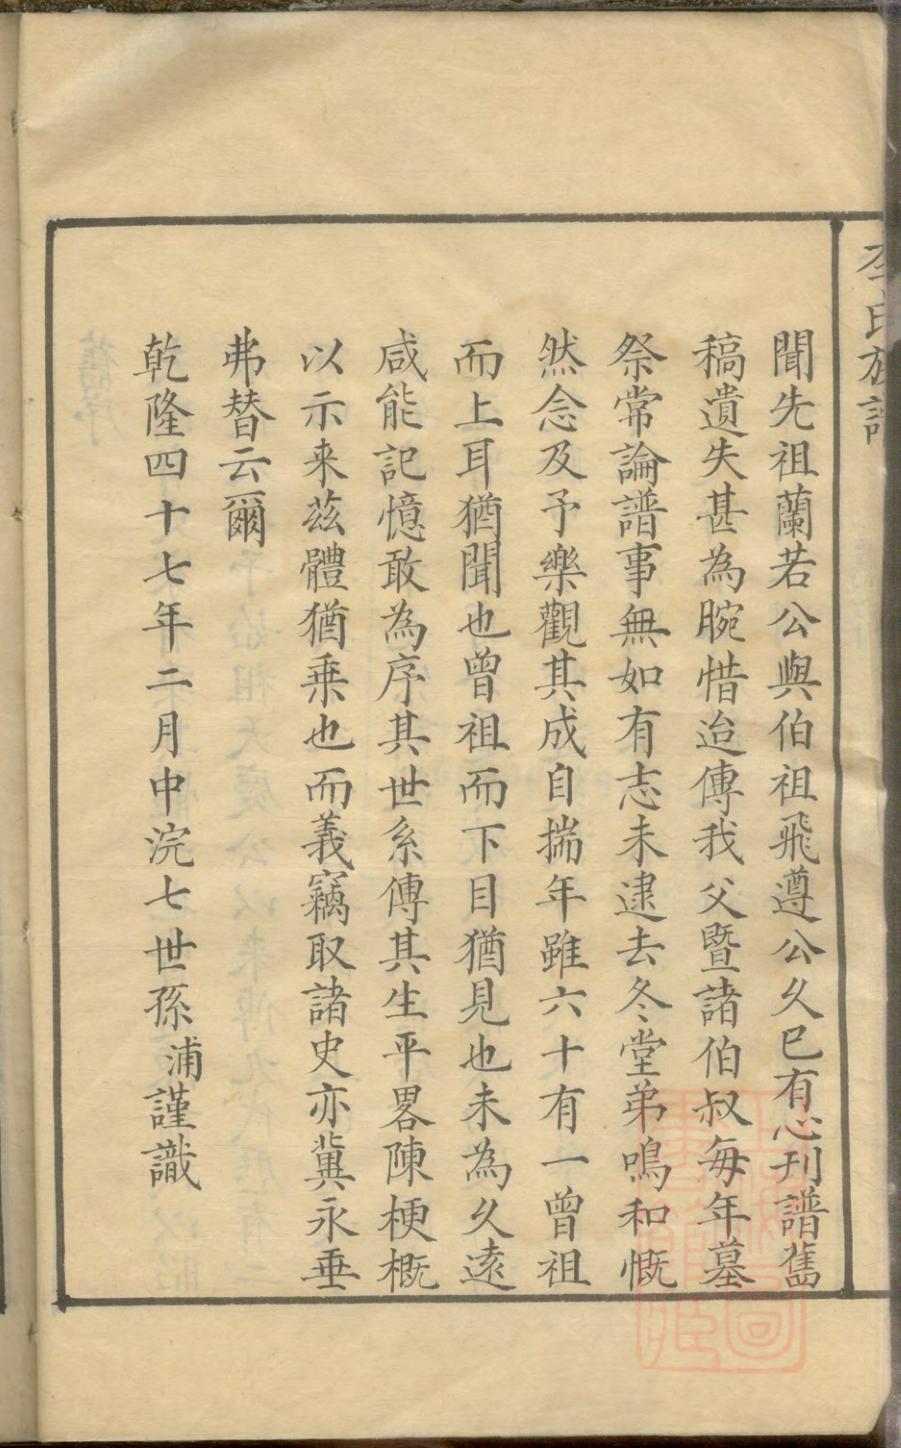 李氏族譜
聞先祖蘭若公與伯祖飛遵公久已有心刊譜舊
稿遺失甚為腕惜迨傳我父暨諸伯叔每年墓
祭常論譜事無如有志未逮去冬堂弟鳴和慨
然念及予樂觀其成自揣年雖六十有一曾祖
而上耳猶聞也曾祖而下目猶見也未為久遠
咸能記憶敢為序其世系傳其生平畧陳梗概
以示来茲體猶乗也而義竊取諸史亦冀永垂
弗替云爾
乾隆四十七年二月中浣七世孫浦謹識